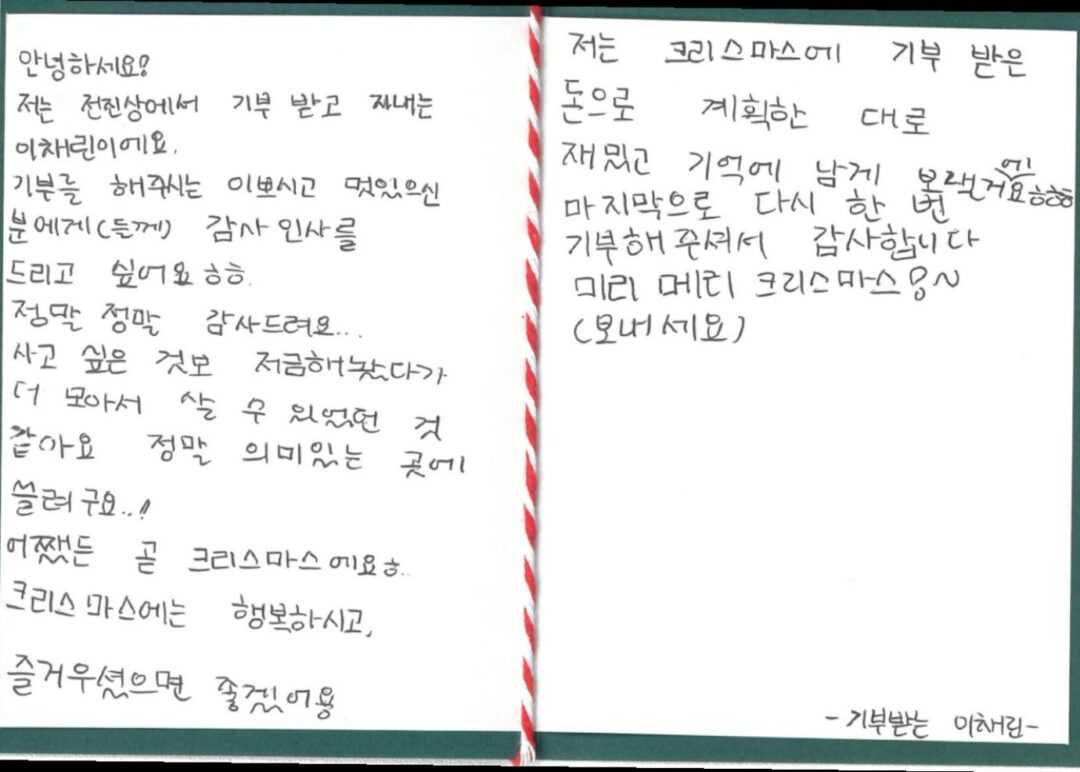 안녕하세요!
저는 전진상에서 기부 받고 지내는
이채린이에요.
기부를 해주시는 이쁘시고 멋있으신
분에게(들께) 감사 인사를
드리고 싶어요ㅎㅎ
정말 정말 감사드려요...
사고 싶은 것보 저금해놨다가
더 모아서 살 수 있었던 것
같아요 정말 의미있는 곳에
쓸려구요..!
어쨌든 곧 크리스마스에요ㅎ..
크리스마스에는 행복하시고,
즐거우셨으면 좋겠어용
저는 크리스마스에 기부 받은
돈으로 계획한 대로
재밌고 기억에 남게 보낼거에요ㅎㅎㅎ
마지막으로 다시 한 번
기부해주셔서 감사합니다
미리 메리 크리스마스용~
(보내세요)
-기부받는 이채린-